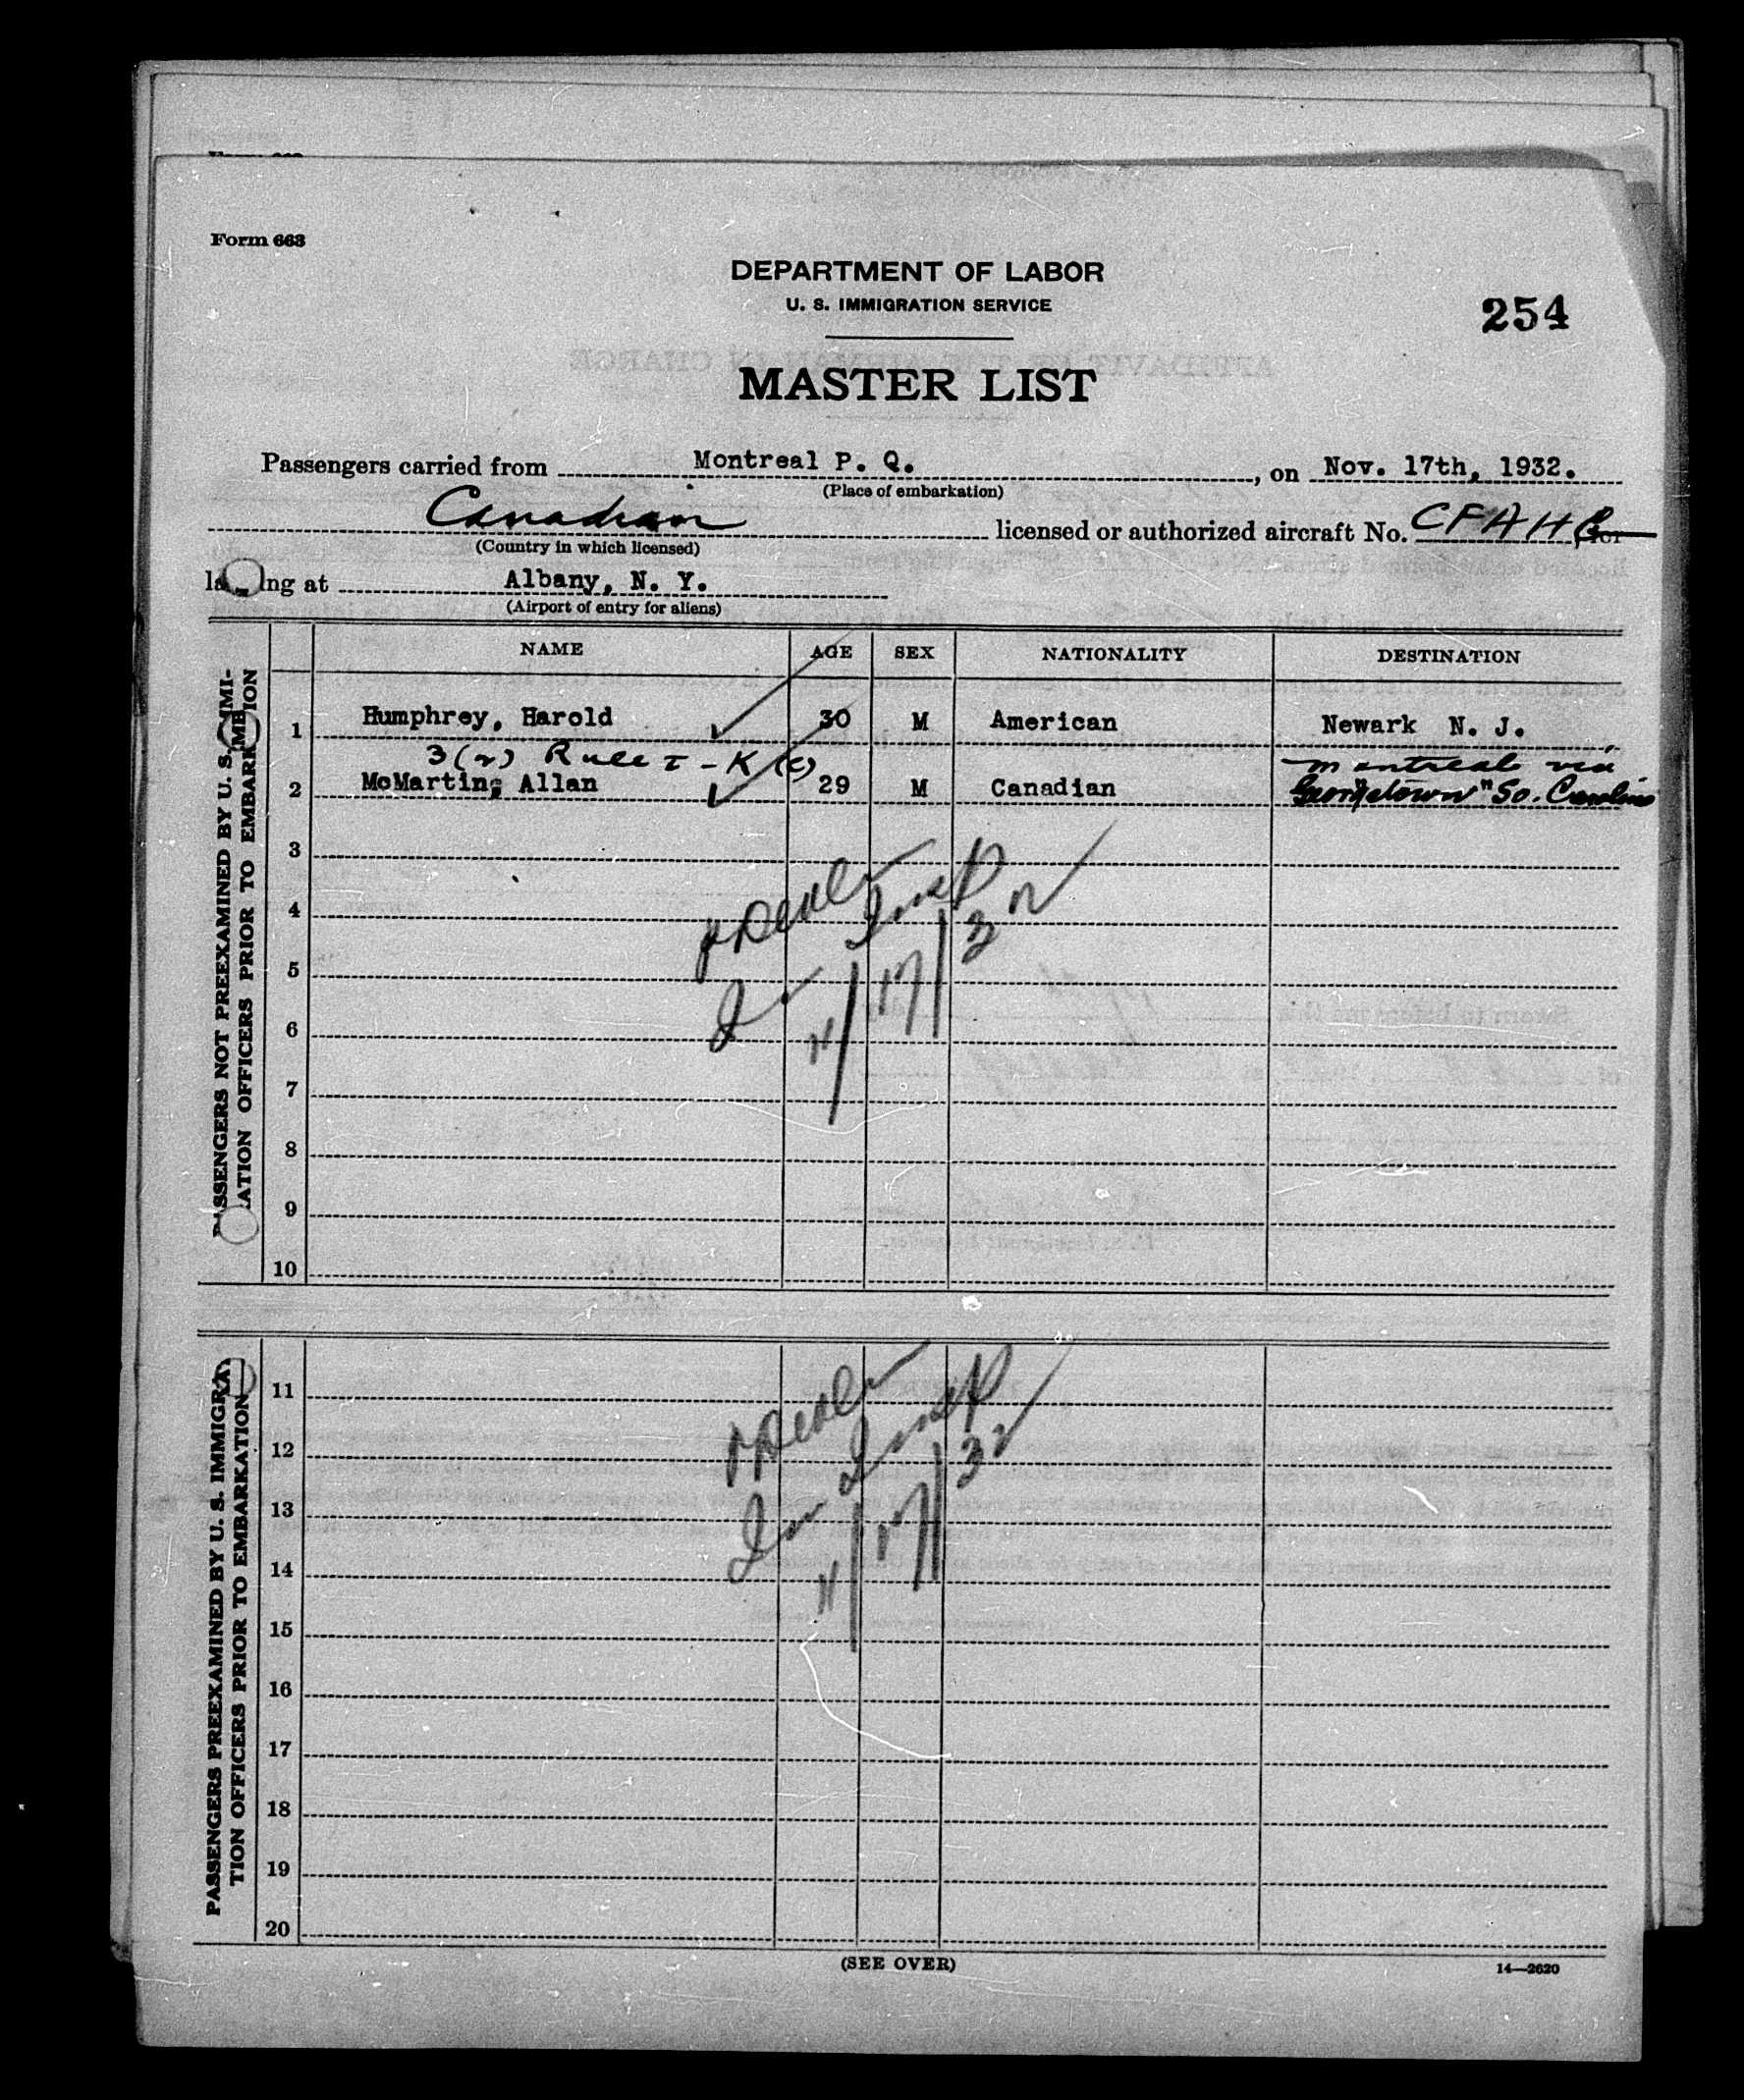 Form 663
DEPARTMENT OF LABOR
U. S. IMMIGRATION SERVICE
254
MASTER LIST
Passengers carried from Montreal P. Q., on Nov. 17th, 1932.
(Place of embarkation)
Canadian licensed or authorized aircraft No. CFAH , for
(Country in which licensed)
la ng at Albany, N. Y.
(Airport of entry for aliens)
NAME AGE SEX NATIONALITY DESTINATION
PASSENGERS NOT PREEXAMINED BY U. S. IMMI-
RATION OFFICERS PRIOR TO EMBARKATION
1 Humphrey, Harold 30 M American Newark N. J.
3(2) Rule I - K (c) Montreal via
2 McMartin, Allan 29 M Canadian "Georgetown" So. Carolina
3
4
5
6
7
8
9
10
Insp
11/17/32
PASSENGERS PREEXAMINED BY U. S. IMMIGRA
TION OFFICERS PRIOR TO EMBARKATION
11
12
13
14
15
16
17
18
19
20
Insp
11/17/32
(SEE OVER)
14—2620